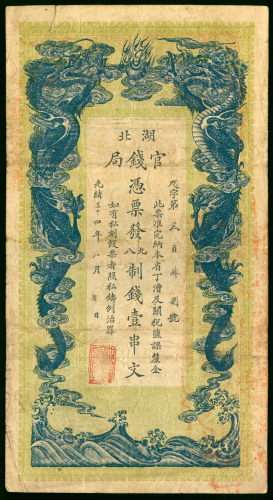 湖北
官錢局
憑票發九八制錢壹串文
此票准完納本省丁漕及關稅鹽課釐金
如有私刻假票者照私鑄例治罪
光緒三十四年八月 日
字第 百 號